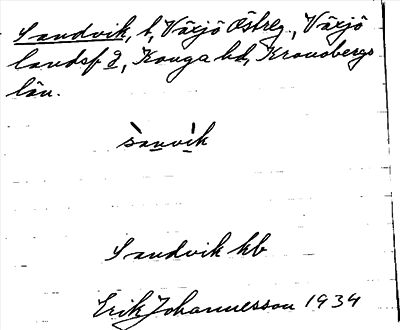 Sandvik, t, Växjö Östreg., Växjö
landsf d, Konga hd, Kronobergs
län.
sànvìk
Sandvik kb
Erik Johannesson 1934